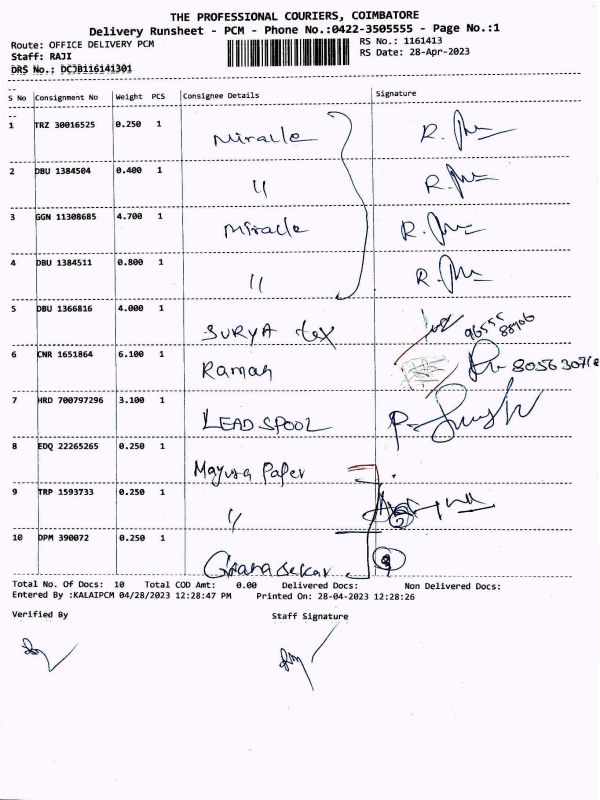 THE PROFESSIONAL COURIERS, COIMBATORE
Delivery Runsheet - PCM - Phone No.:0422-3505555 - Page No.:1
Route: OFFICE DELIVERY PCM
RS No.: 1161413
Staff: RAJI
RS Date: 28-Apr-2023
DRS No.: DCJB116141301
S No Consignment No Weight PCS Consignee Details Signature
1 TRZ 30016525 0.250 1 Miracle
2 DBU 1384504 0.400 1 "
3 GGN 11308685 4.700 1 Miracle
4 DBU 1384511 0.800 1 "
5 DBU 1366816 4.000 1 SURYA tex
6 CNR 1651864 6.100 1 Raman
7 HRD 700797296 3.100 1 LEAD SPOOL
8 EDQ 22265265 0.250 1 Mayura Paper
9 TRP 1593733 0.250 1 "
10 DPM 390072 0.250 1
Total No. Of Docs: 10 Total COD Amt: 0.00 Delivered Docs: Non Delivered Docs:
Entered By :KALAIPCM 04/28/2023 12:28:47 PM Printed On: 28-04-2023 12:28:26
Verified By Staff Signature